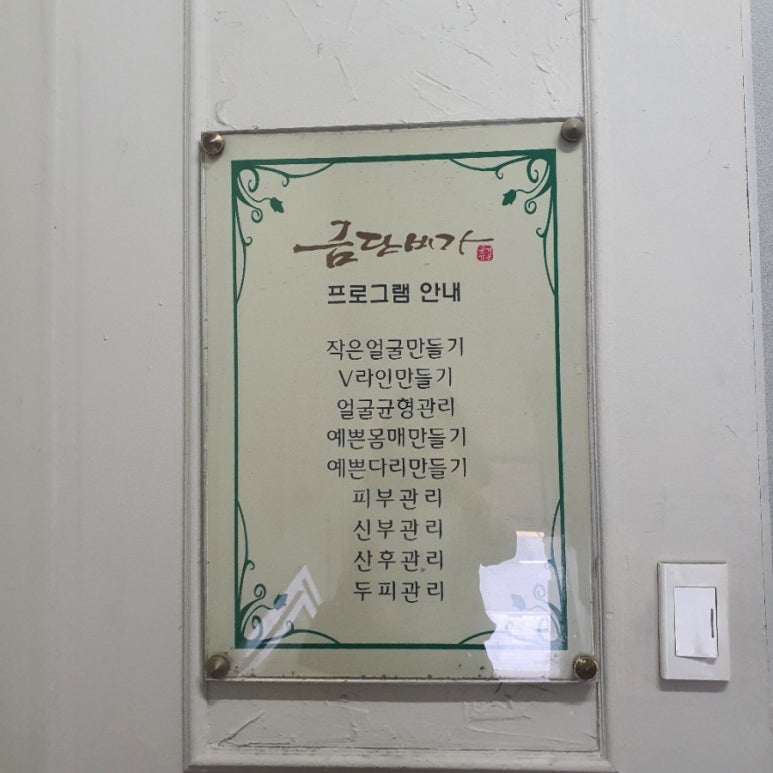 금단비가
프로그램 안내
작은얼굴만들기
V라인만들기
얼굴균형관리
예쁜몸매만들기
예쁜다리만들기
피부관리
신부관리
산후관리
두피관리